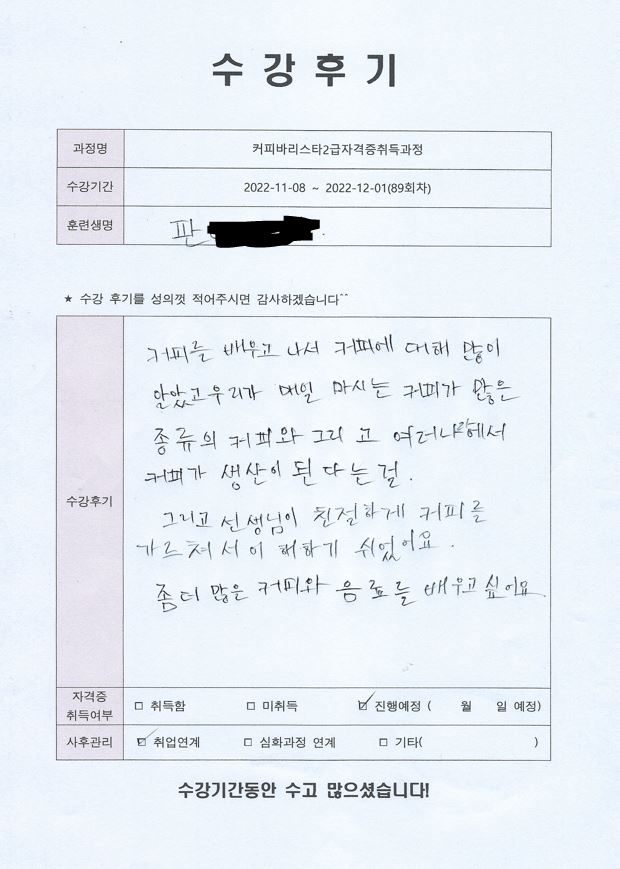 수강후기
과정명 커피바리스타2급자격증취득과정
수강기간 2022-11-08 ~ 2022-12-01(89회차)
훈련생명 판
★ 수강 후기를 성의껏 적어주시면 감사하겠습니다^^
수강후기
커피를 배우고 나서 커피에 대해 많이
알았고 우리가 매일 마시는 커피가 많은
종류의 커피와 그리고 여러나라에서
커피가 생산이 된다는걸.
그리고 선생님이 친절하게 커피를
가르쳐서 이해하기 쉬었어요.
좀더 많은 커피와 음료를 배우고 싶어요
자격증 취득여부 □ 취득함 □ 미취득 ☑ 진행예정 ( 월 일 예정)
사후관리 ☑ 취업연계 □ 심화과정 연계 □ 기타( )
수강기간동안 수고 많으셨습니다!